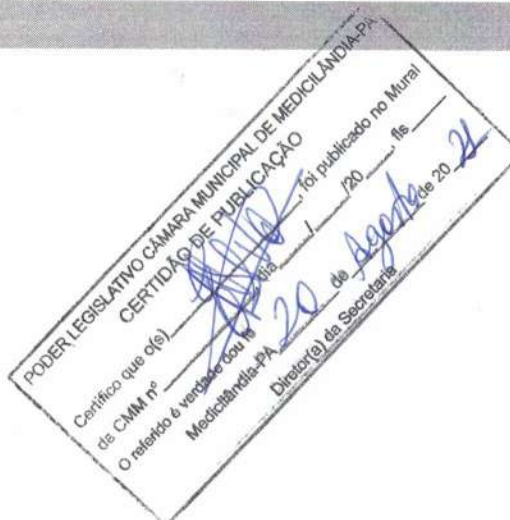 PODER LEGISLATIVO CÂMARA MUNICIPAL DE MEDICILÂNDIA-PA
CERTIDÃO DE PUBLICAÇÃO
Certifico que o(s) ______, foi publicado no Mural
da CMM nº ______ dia ___/___/20___ fls ___
O referido é verdade dou fé
Medicilândia-PA 20 de Agosto de 20 21
Diretor(a) da Secretaria